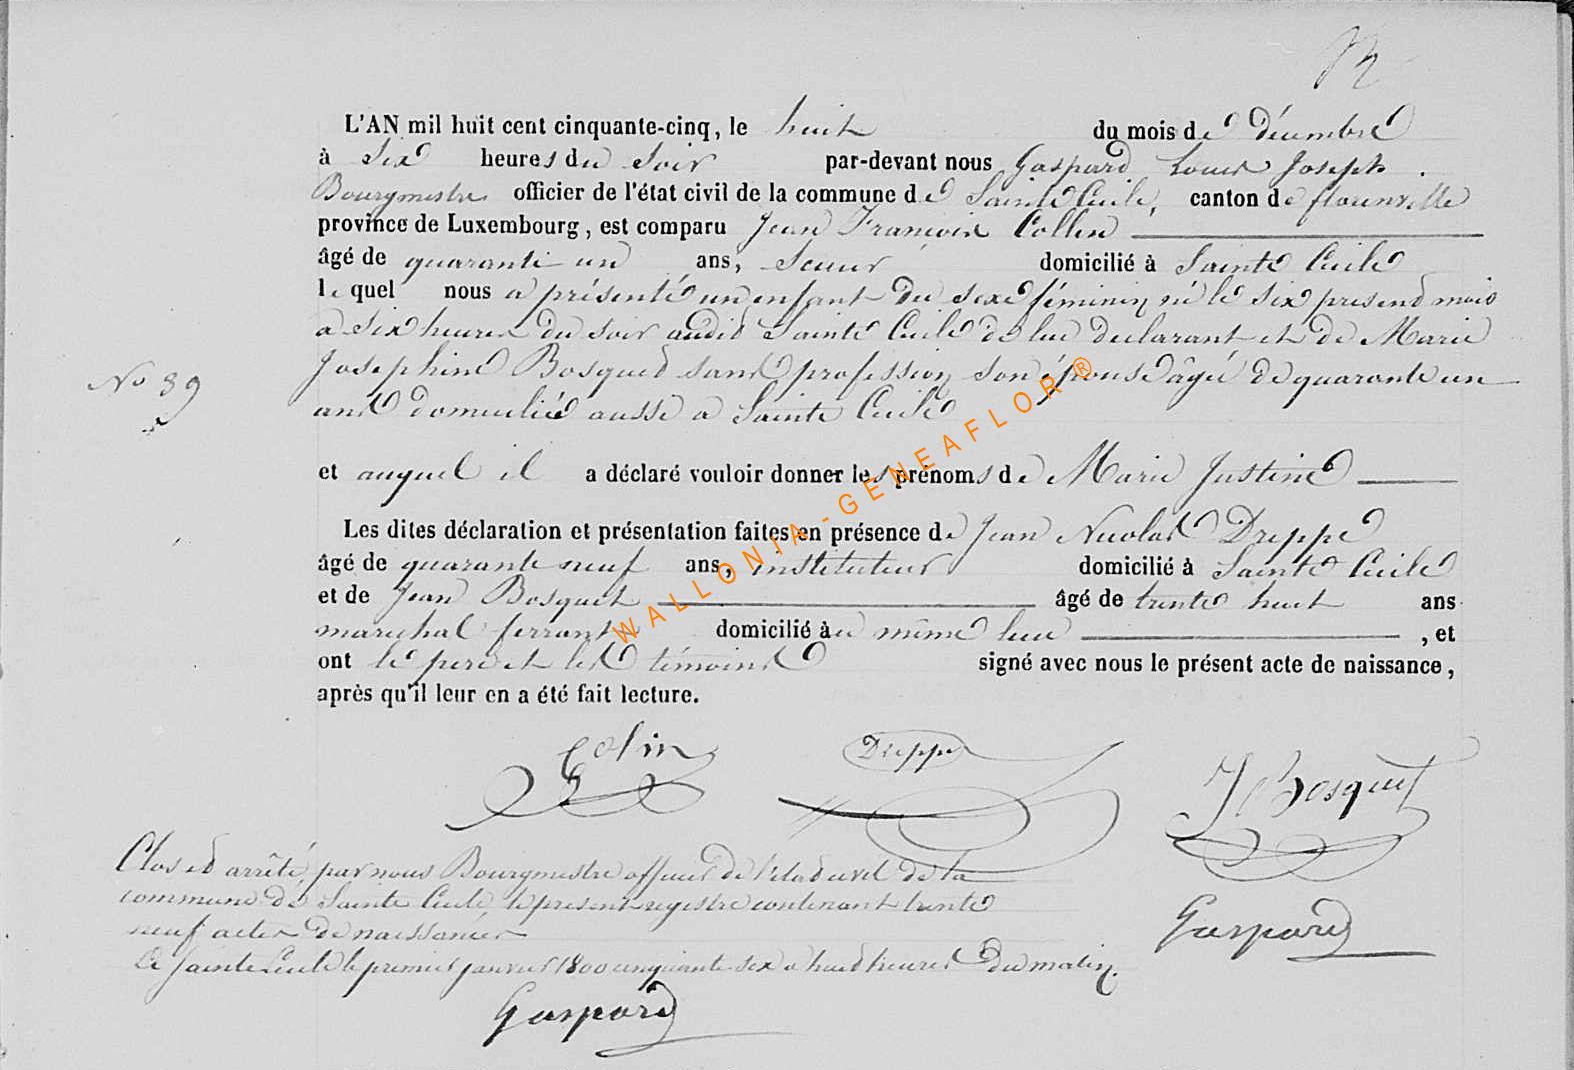 L'AN mil huit cent cinquante-cinq, le huit du mois de décembre
à six heures du soir par-devant nous Gaspard Louis Joseph
Bourgmestre officier de l'état civil de la commune de Sainte Cecile, canton de florenville
province de Luxembourg, est comparu Jean Francoix Collin
âgé de quarante un ans, Scieur domicilié à Sainte Cecile
le quel nous a présenté un enfant du sexe féminin né le six presend mois
a six heures du soir audid Sainte Cecile de lui declarant et de Marie
Josephine Bosqued sans profession son épouse âgée de quarante un
No 39
ans domiciliée aussi a Sainte Cecile
et auquel il a déclaré vouloir donner les prénoms de Marie Justine
Les dites déclaration et présentation faites en présence de Jean Nicolas Dreppe
âgé de quarante neuf ans, instituteur domicilié à Sainte Cecile
et de Jean Bosquet âgé de trente huit ans
marichal ferrant domicilié à même lieu , et
ont le pere et les témoins signé avec nous le présent acte de naissance,
après qu'il leur en a été fait lecture.
Colin Dreppe J Bosquet
Clos ed arrêté par nous Bourgmestre officier de l'etad civil de la
commune de Sainte Cecile le present registre contenant trente
neuf actes de naissances
Gaspard
a Sainte Cecile le premier janvier 1800 cinquante six a huid heures du matin.
Gaspard
WALLONIA-GENEAFLOR®